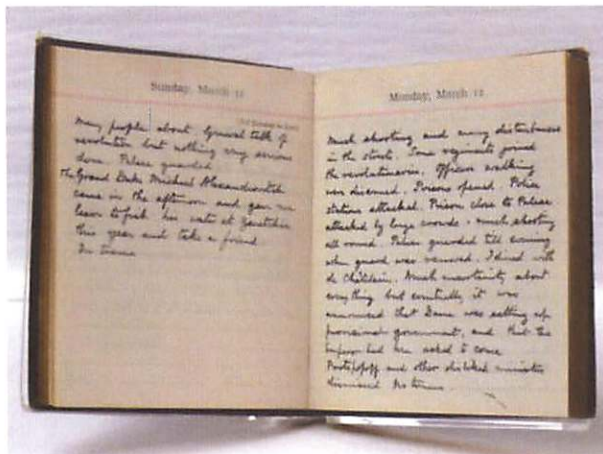 Sunday, March 11
many people about. General talk of
revolution but nothing very serious
done. Palace guarded
The Grand Duke Michael Alexandrovitch
came in the afternoon and gave me
leave to fish his water at Gatchina
this year and take a friend
No trams
Monday, March 12
Much shooting and many disturbances
in the streets. Some regiments joined
the revolutionaries. Officers walking
were disarmed. Prisons opened. Police
stations attacked. Prison close to Palace
attacked by large crowds - much shooting
all round. Palace guarded till evening
when guard was removed. I dined with
de Châtelain. Much uncertainty about
everything but eventually it was
announced that Duma was setting up
provisional government, and that the
Emperor had been asked to come
Protopopoff and other disliked ministers
dismissed No trams.